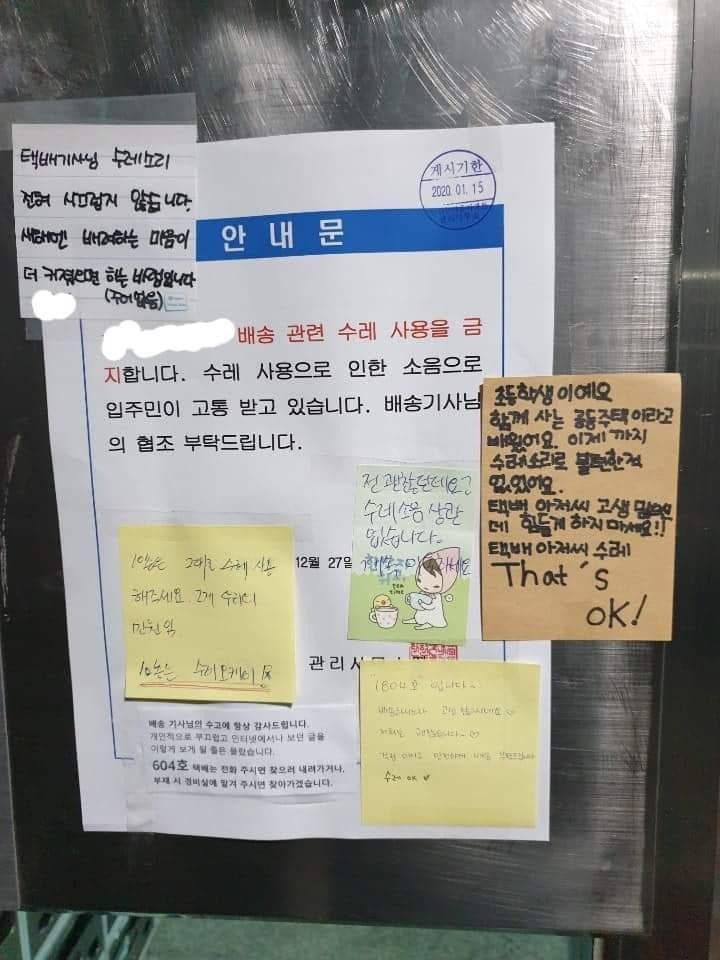 택배기사님 수레소리
전혀 시끄럽지 않습니다.
배려하는 마음이
더 커졌으면 하는 바램입니다
(주어없음)
게시기한
2020. 01. 15
안내문
배송 관련 수레 사용을 금
지합니다. 수레 사용으로 인한 소음으로
입주민이 고통 받고 있습니다. 배송기사님
의 협조 부탁드립니다.
12월 27일
관리사무소
초등학생이예요
함께 사는 공동주택이라고
배웠어요. 이제까지
수레소리로 불편한적
없었어요.
택배 아저씨 고생
데 힘들게 하지마세요!!
택배 아저씨 수레
That's
OK!
전 괜찮은데요?
수레소음 상관
없습니다~
tea
time
수레 사용
해주세요.
수레오케이
배송 기사님의 수고에 항상 감사드립니다.
개인적으로 부끄럽고 인터넷에서나 보던 글을
이렇게 보게 될 줄은 몰랐습니다.
604호 택배는 전화 주시면 찾으러 내려가거나.
부재 시 경비실에 맡겨 주시면 찾아가겠습니다.
1804호 입니다~
고생 많으시네요♡
저희는 괜찮습니다~♡
안전하게 부탁드립니다
수레 OK ♥